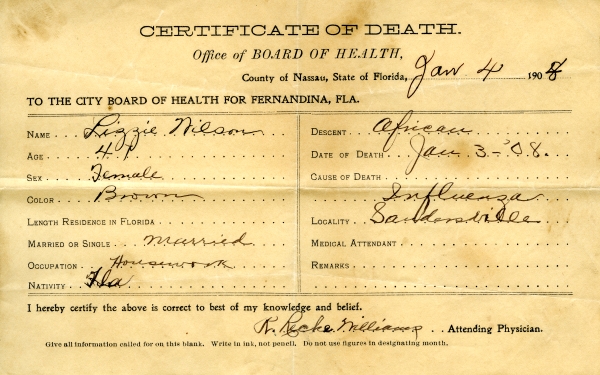 CERTIFICATE OF DEATH.
Office of BOARD OF HEALTH,
County of Nassau, State of Florida, Jan 4 1908
TO THE CITY BOARD OF HEALTH FOR FERNANDINA, FLA.
NAME Lizzie Wilson
AGE 41
SEX Female
COLOR Brown
LENGTH RESIDENCE IN FLORIDA
MARRIED OR SINGLE Married
OCCUPATION Housework
NATIVITY Fla
DESCENT African
DATE OF DEATH Jan 3-'08.
CAUSE OF DEATH
Influenza
LOCALITY Sandersville
MEDICAL ATTENDANT
REMARKS
I hereby certify the above is correct to best of my knowledge and belief.
Williams Attending Physician.
Give all information called for on this blank. Write in ink, not pencil. Do not use figures in designating month.